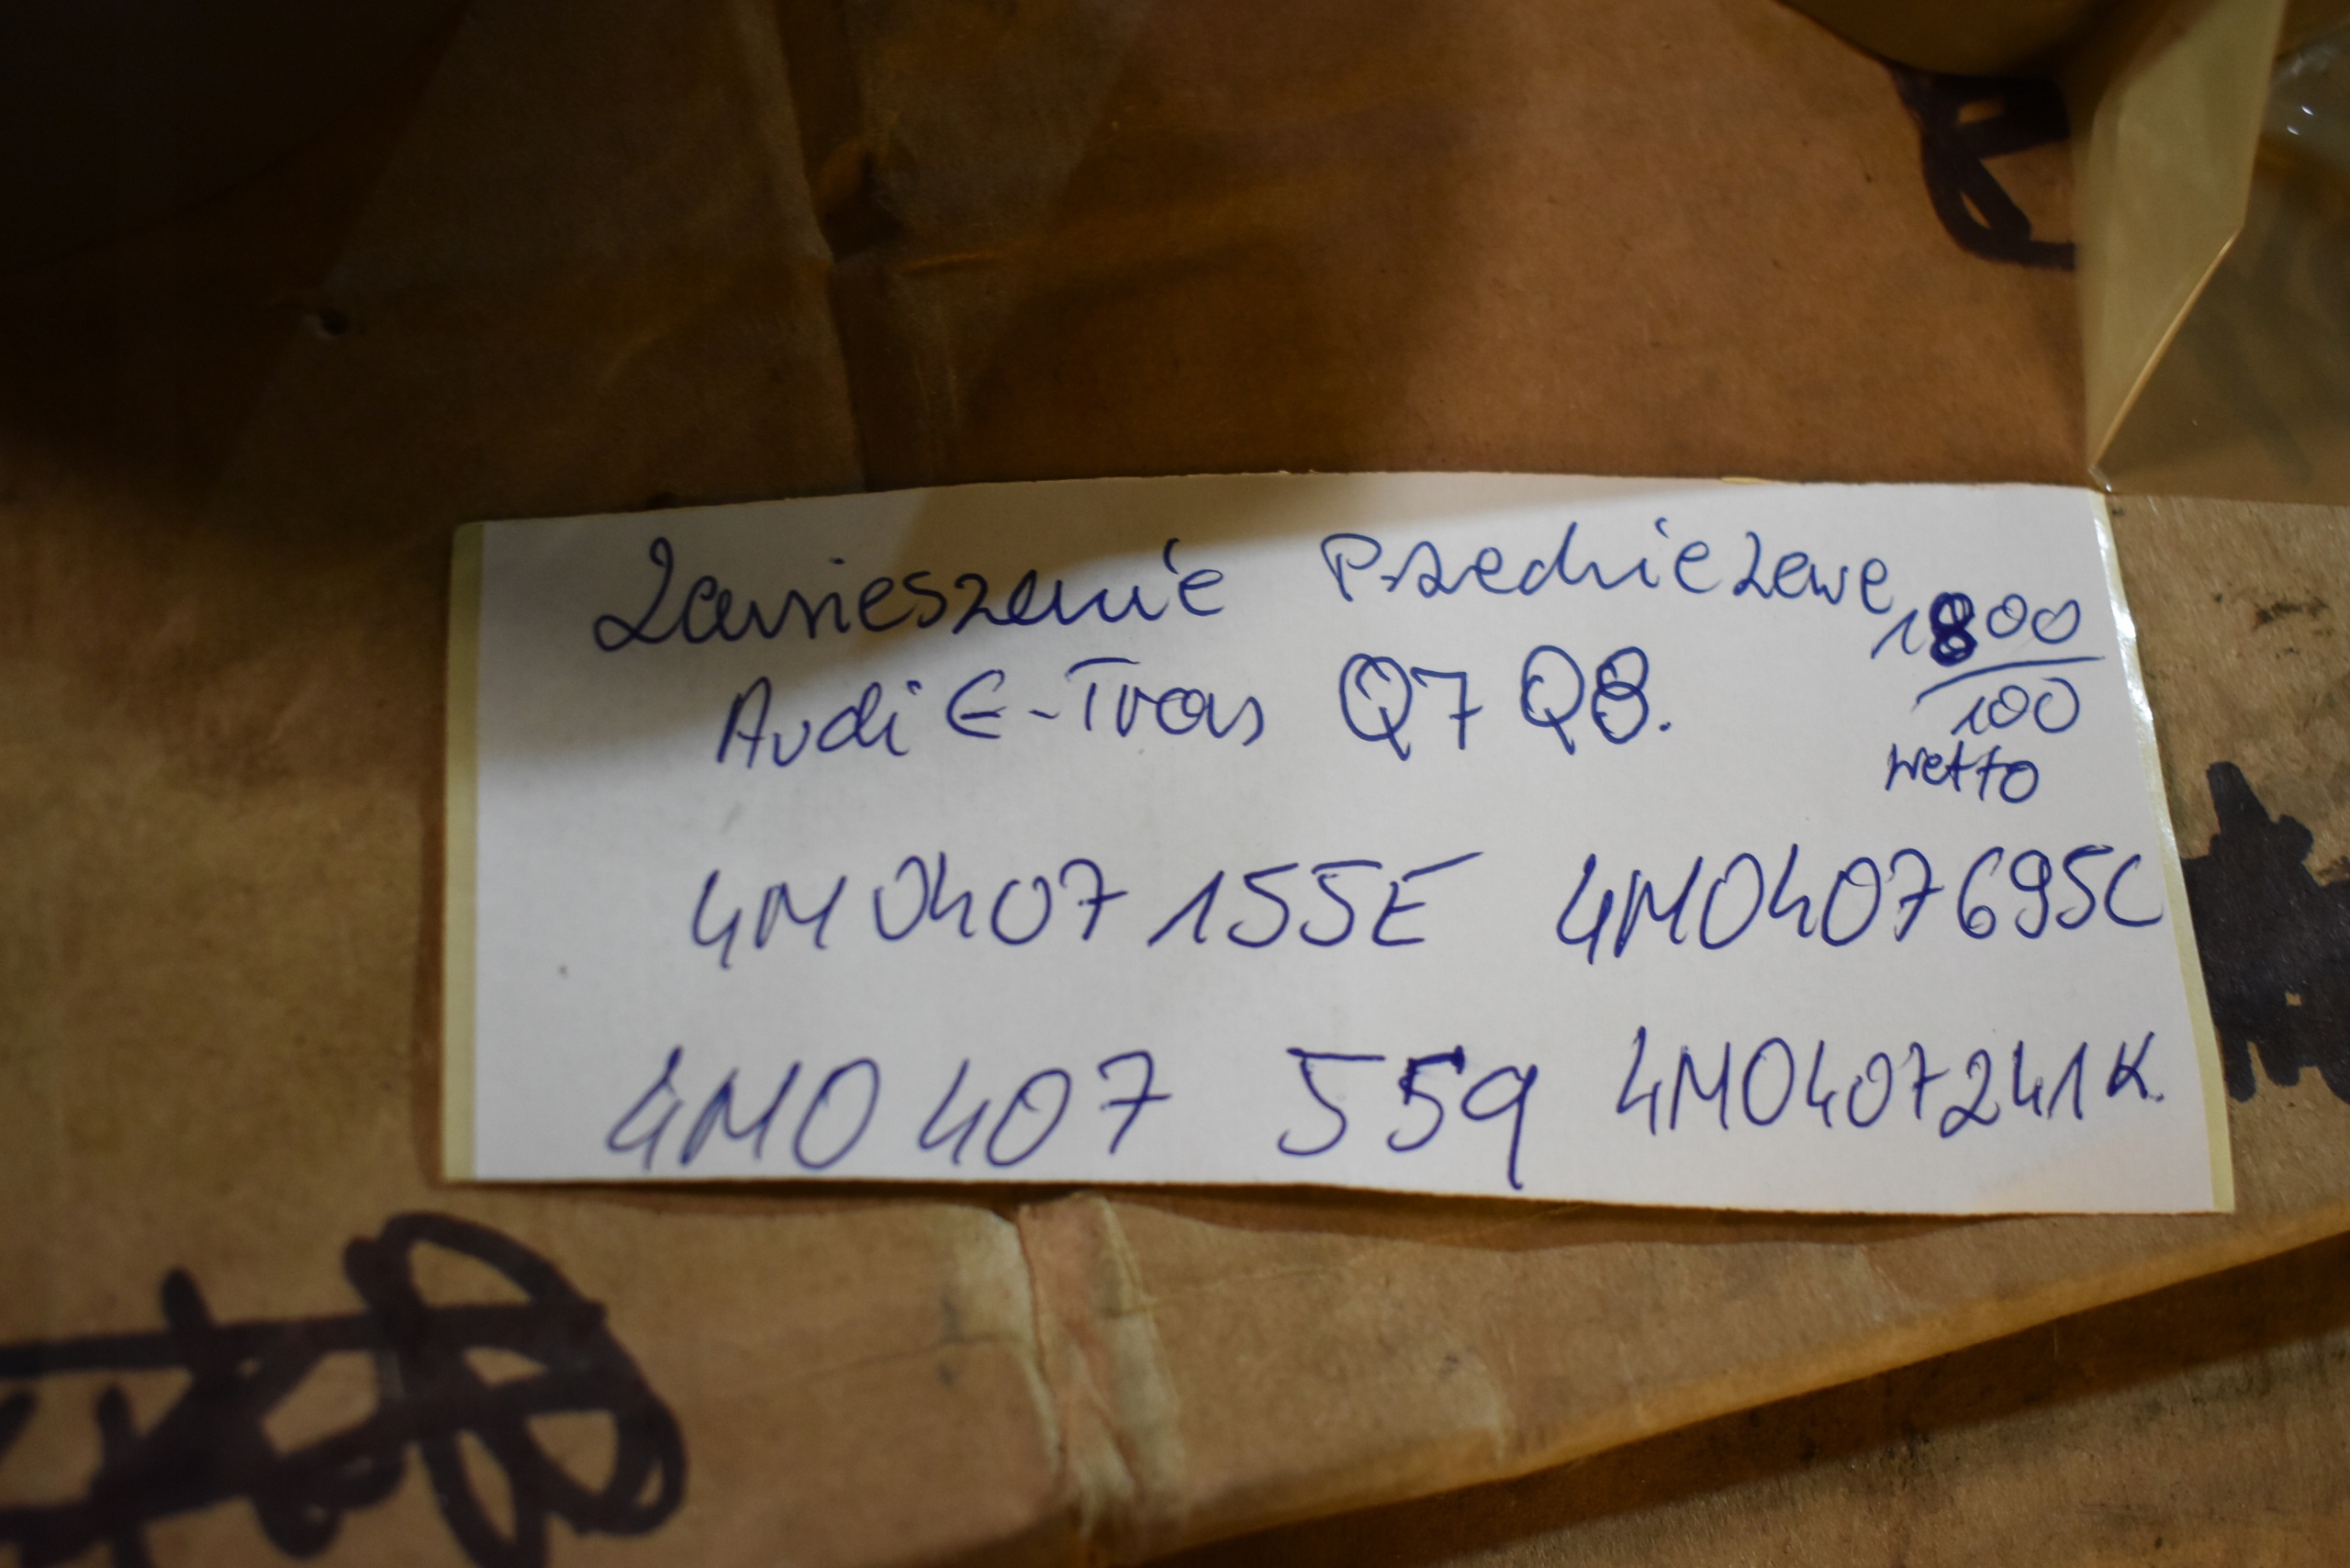 Zawieszenie Przednie Lewe
1800
Audi E-Tron Q7 Q8.
100
netto
4M0407155E 4M0407695C
4M0 407 559 4M0407241K.